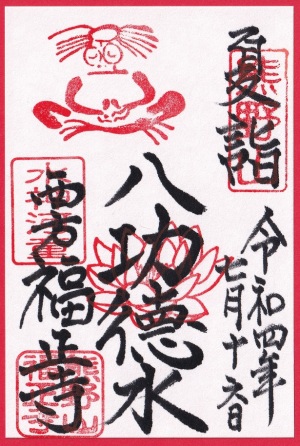 夏詣
熊野山
令和四年
七月十六日
八功徳水
西方福正寺